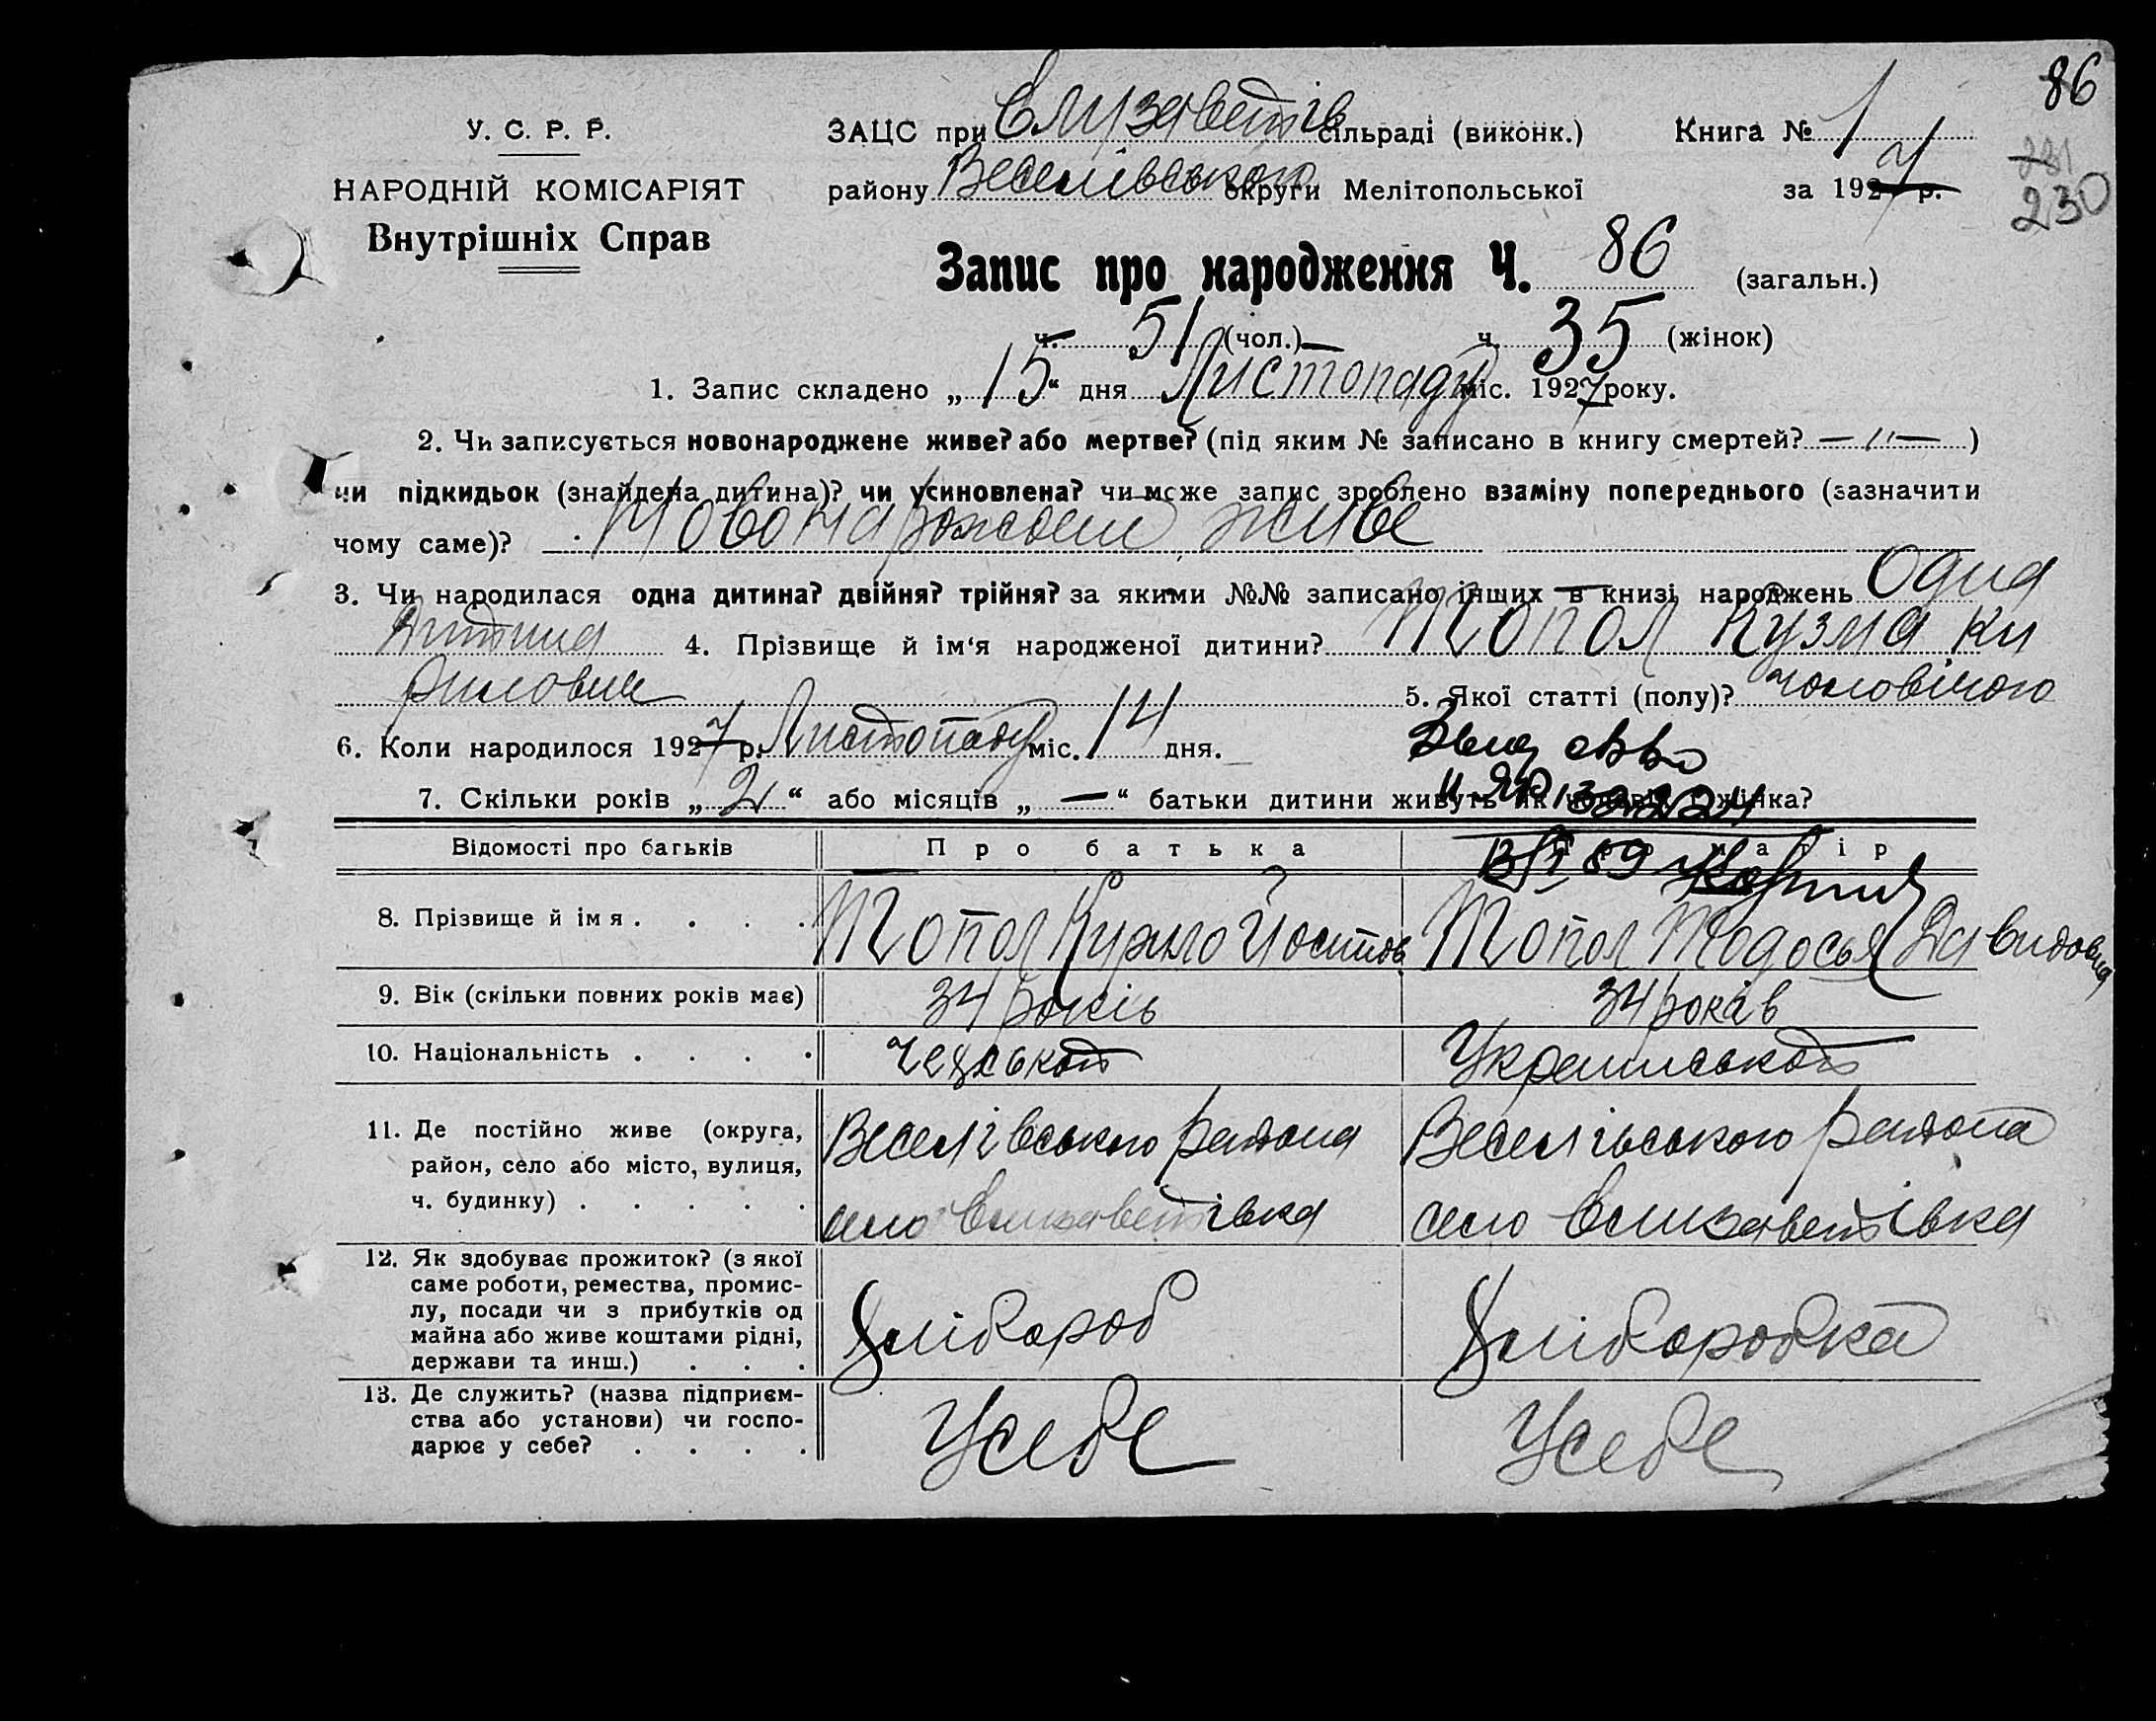 86
У. С. Р. Р.
ЗАЦС при Єлизаветів сільраді (виконк.) Книга № 1
231
НАРОДНІЙ КОМІСАРІЯТ
району Веселівського округи Мелітопольської за 1927 р.
230
Внутрішніх Справ
Запис про народження Ч. 86 (загальн.)
ч. 51 (чол.) ч. 35 (жінок)
1. Запис складено „15“ дня Листопаду міс. 1927 року.
2. Чи записується новонароджене живе? або мертве? (під яким № записано в книгу смертей? —〃— )
чи підкидьок (знайдена дитина)? чи усиновлена? чи може запис зроблено взаміну попереднього (зазначити
чому саме)? живе
3. Чи народилася одна дитина? двійня? трійня? за якими №№ записано інших в книзі народжень Одна
Дитина 4. Прізвище й ім‘я народженої дитини? Топол Кузма Ки
рилович 5. Якої статті (полу)? чоловічого
6. Коли народилося 1927 р. Листопаду міс. 14 дня.
7. Скільки років „2“ або місяців „—“ батьки дитини живуть як чоловік і жінка?
Відомості про батьків Про батька Про матір
8. Прізвище й імя . . . . Топол Йосипов Топол Тодосья Давидовна
9. Вік (скільки повних років має) 34 років 34 років
10. Національність . . . . Чеськой Украинськой
11. Де постійно живе (округа, Веселівського района Веселівського района
район, село або місто, вулиця,
ч. будинку) . . . . . село Єлизаветівка село Єлизаветівка
12. Як здобуває прожиток? (з якої
саме роботи, ремества, промис-
лу, посади чи з прибутків од Хлібороб Хліборобка
майна або живе коштами рідні,
держави та инш.) . . .
13. Де служить? (назва підприєм-
ства або установи) чи госпо- У себе У себе
дарює у себе? . . . .